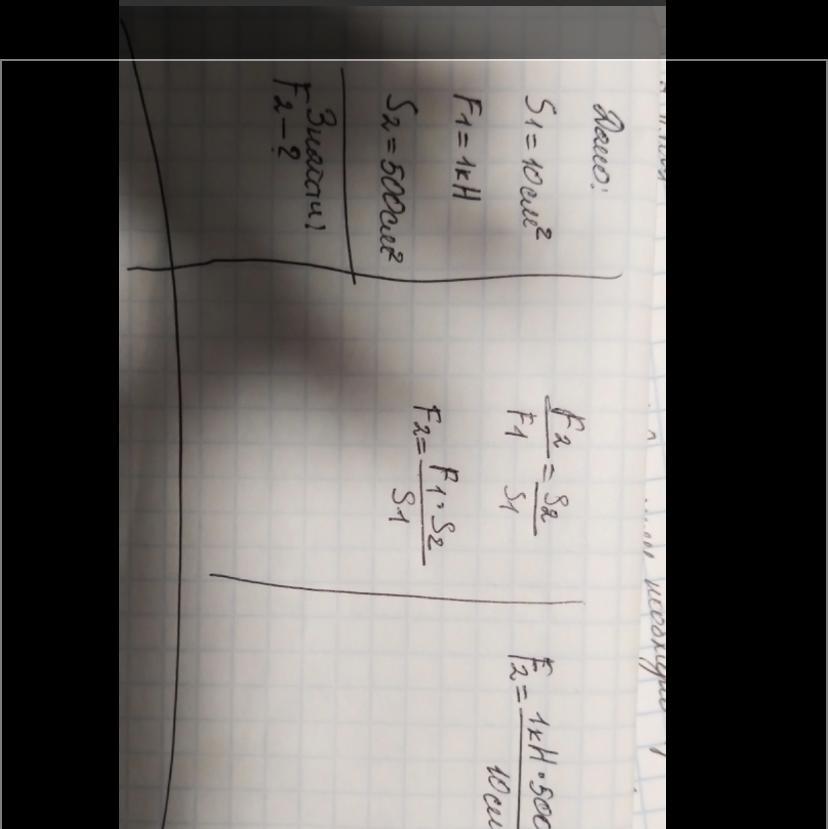 Дано:
S1 = 10см²
F1 = 1кН
S2 = 500см²
Знайти:
F2 - ?
F2/F1 = S2/S1
F2 = F1·S2/S1
F2 = 1кН·500/10см